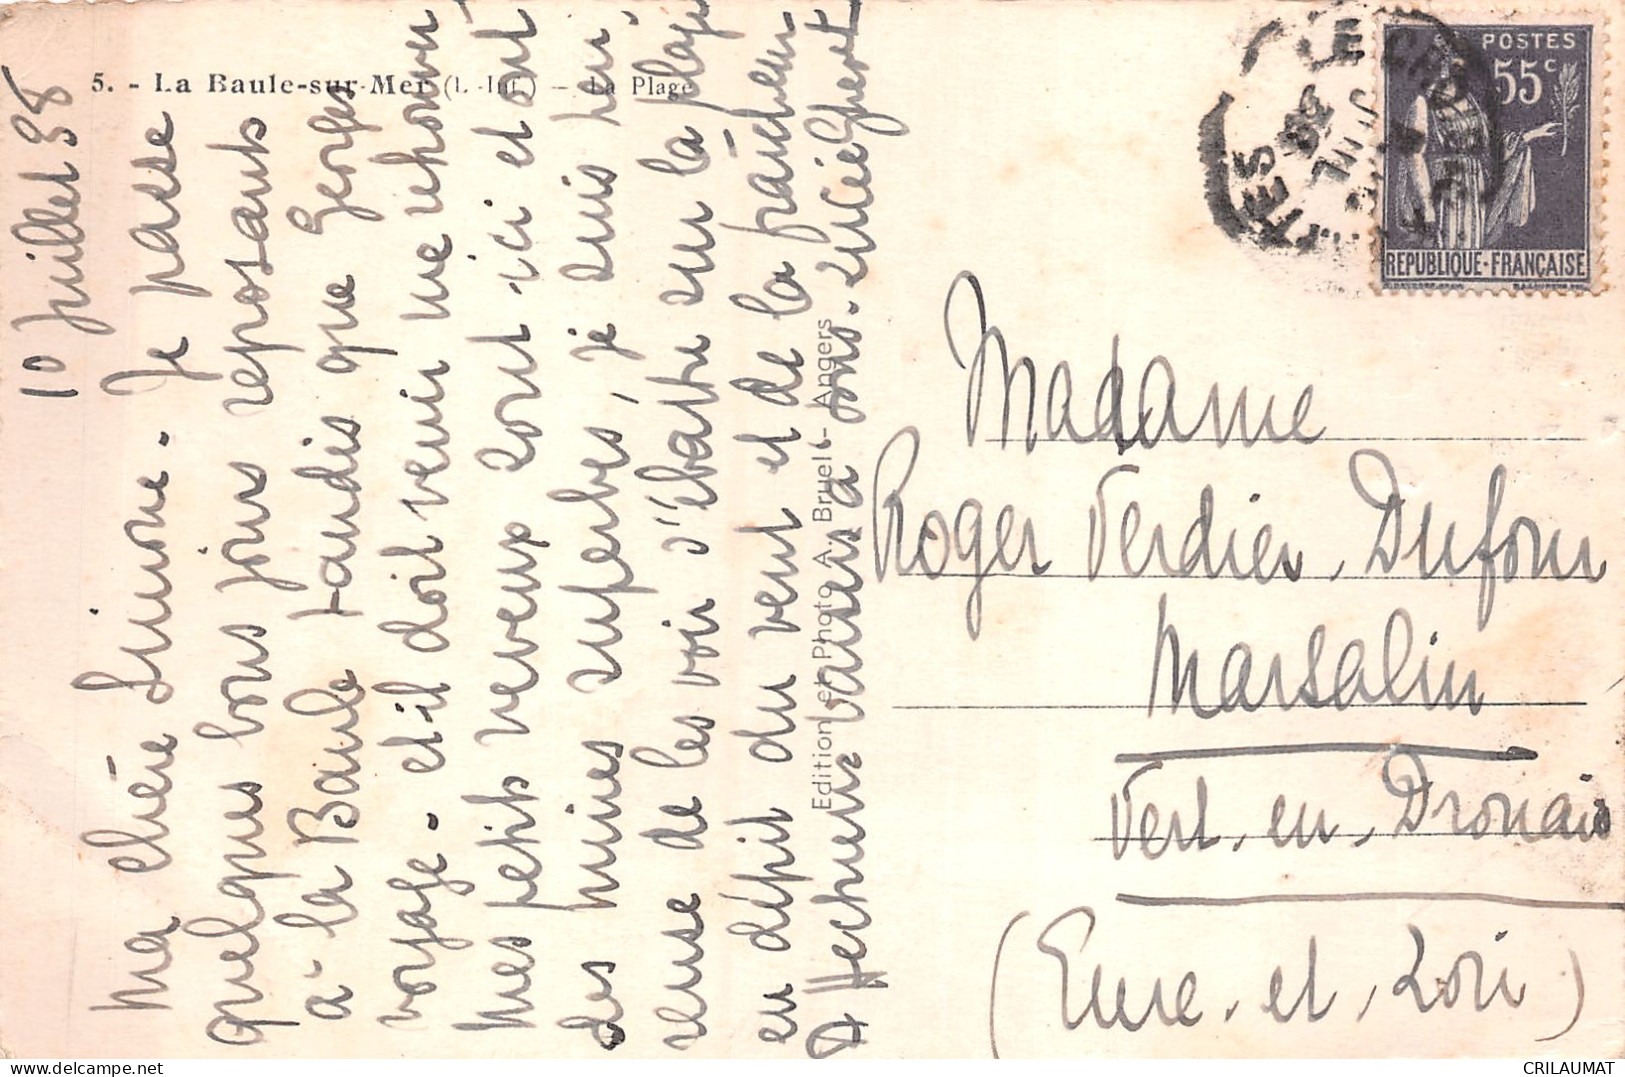 5. - La Baule-sur-Mer (L.-Inf.) - La Plage
10 Juillet 38
Ma chère Simone. Je passe
quelques bons jours reposants
à la Baule tandis que Georges
voyage. et il doit venir me retrouver
Mes petits neveux sont ici et ont
des mines superbes, je suis heu-
reuse de les voir s'ébattre sur la plage
en dépit du vent et de la fraîcheur
à tous. Lucie
Edition et Photo A. Bruel - Angers
POSTES
55c
REPUBLIQUE-FRANÇAISE
Madame
Roger Verdier. Dufour
Marsalin
Vert. en. Drouais
(Eure. et. Loir)
CRILAUMAT